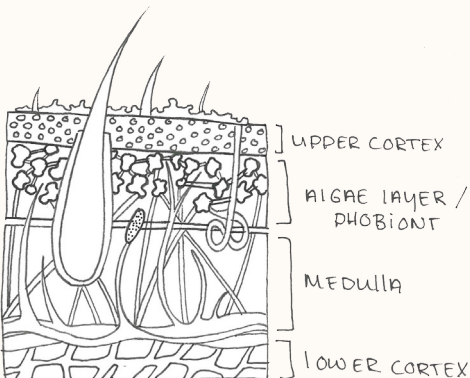 UPPER CORTEX
AlGAE lAYER /
PHOBIONT
MEDUllA
lOWER CORTEX